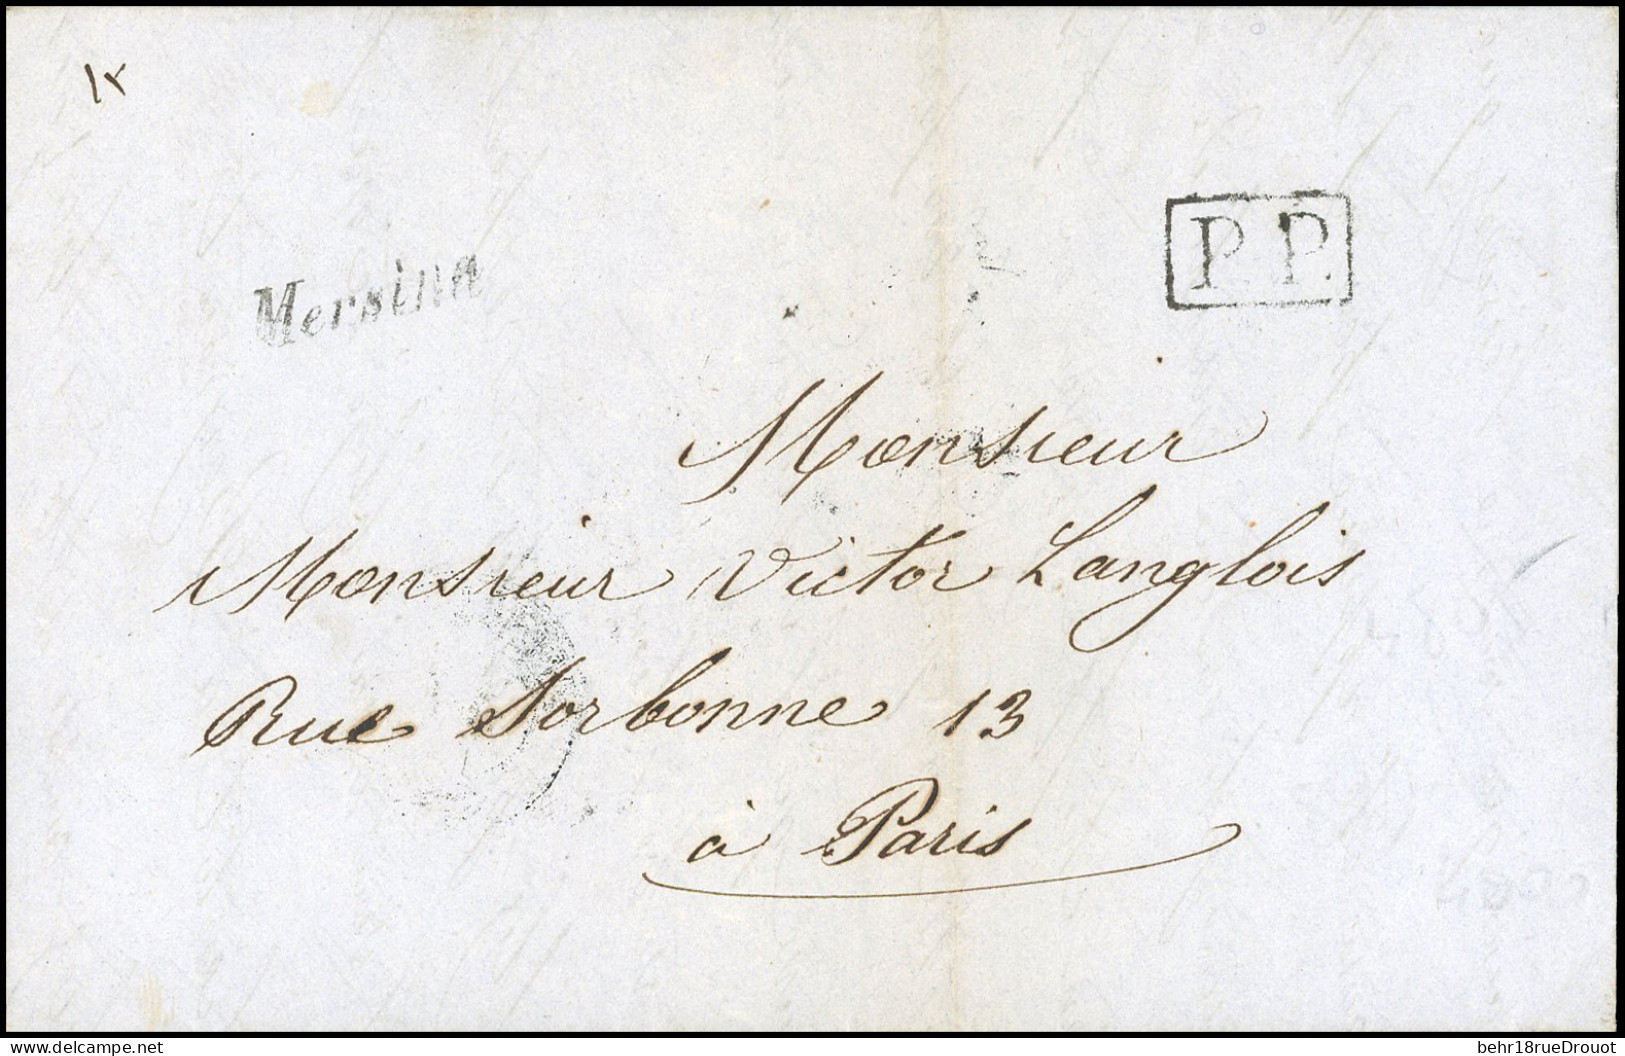 Mersina
P.P.
Monsieur
Monsieur Victor Langlois
Rue Sorbonne 13
à Paris
behr18rueDrouot